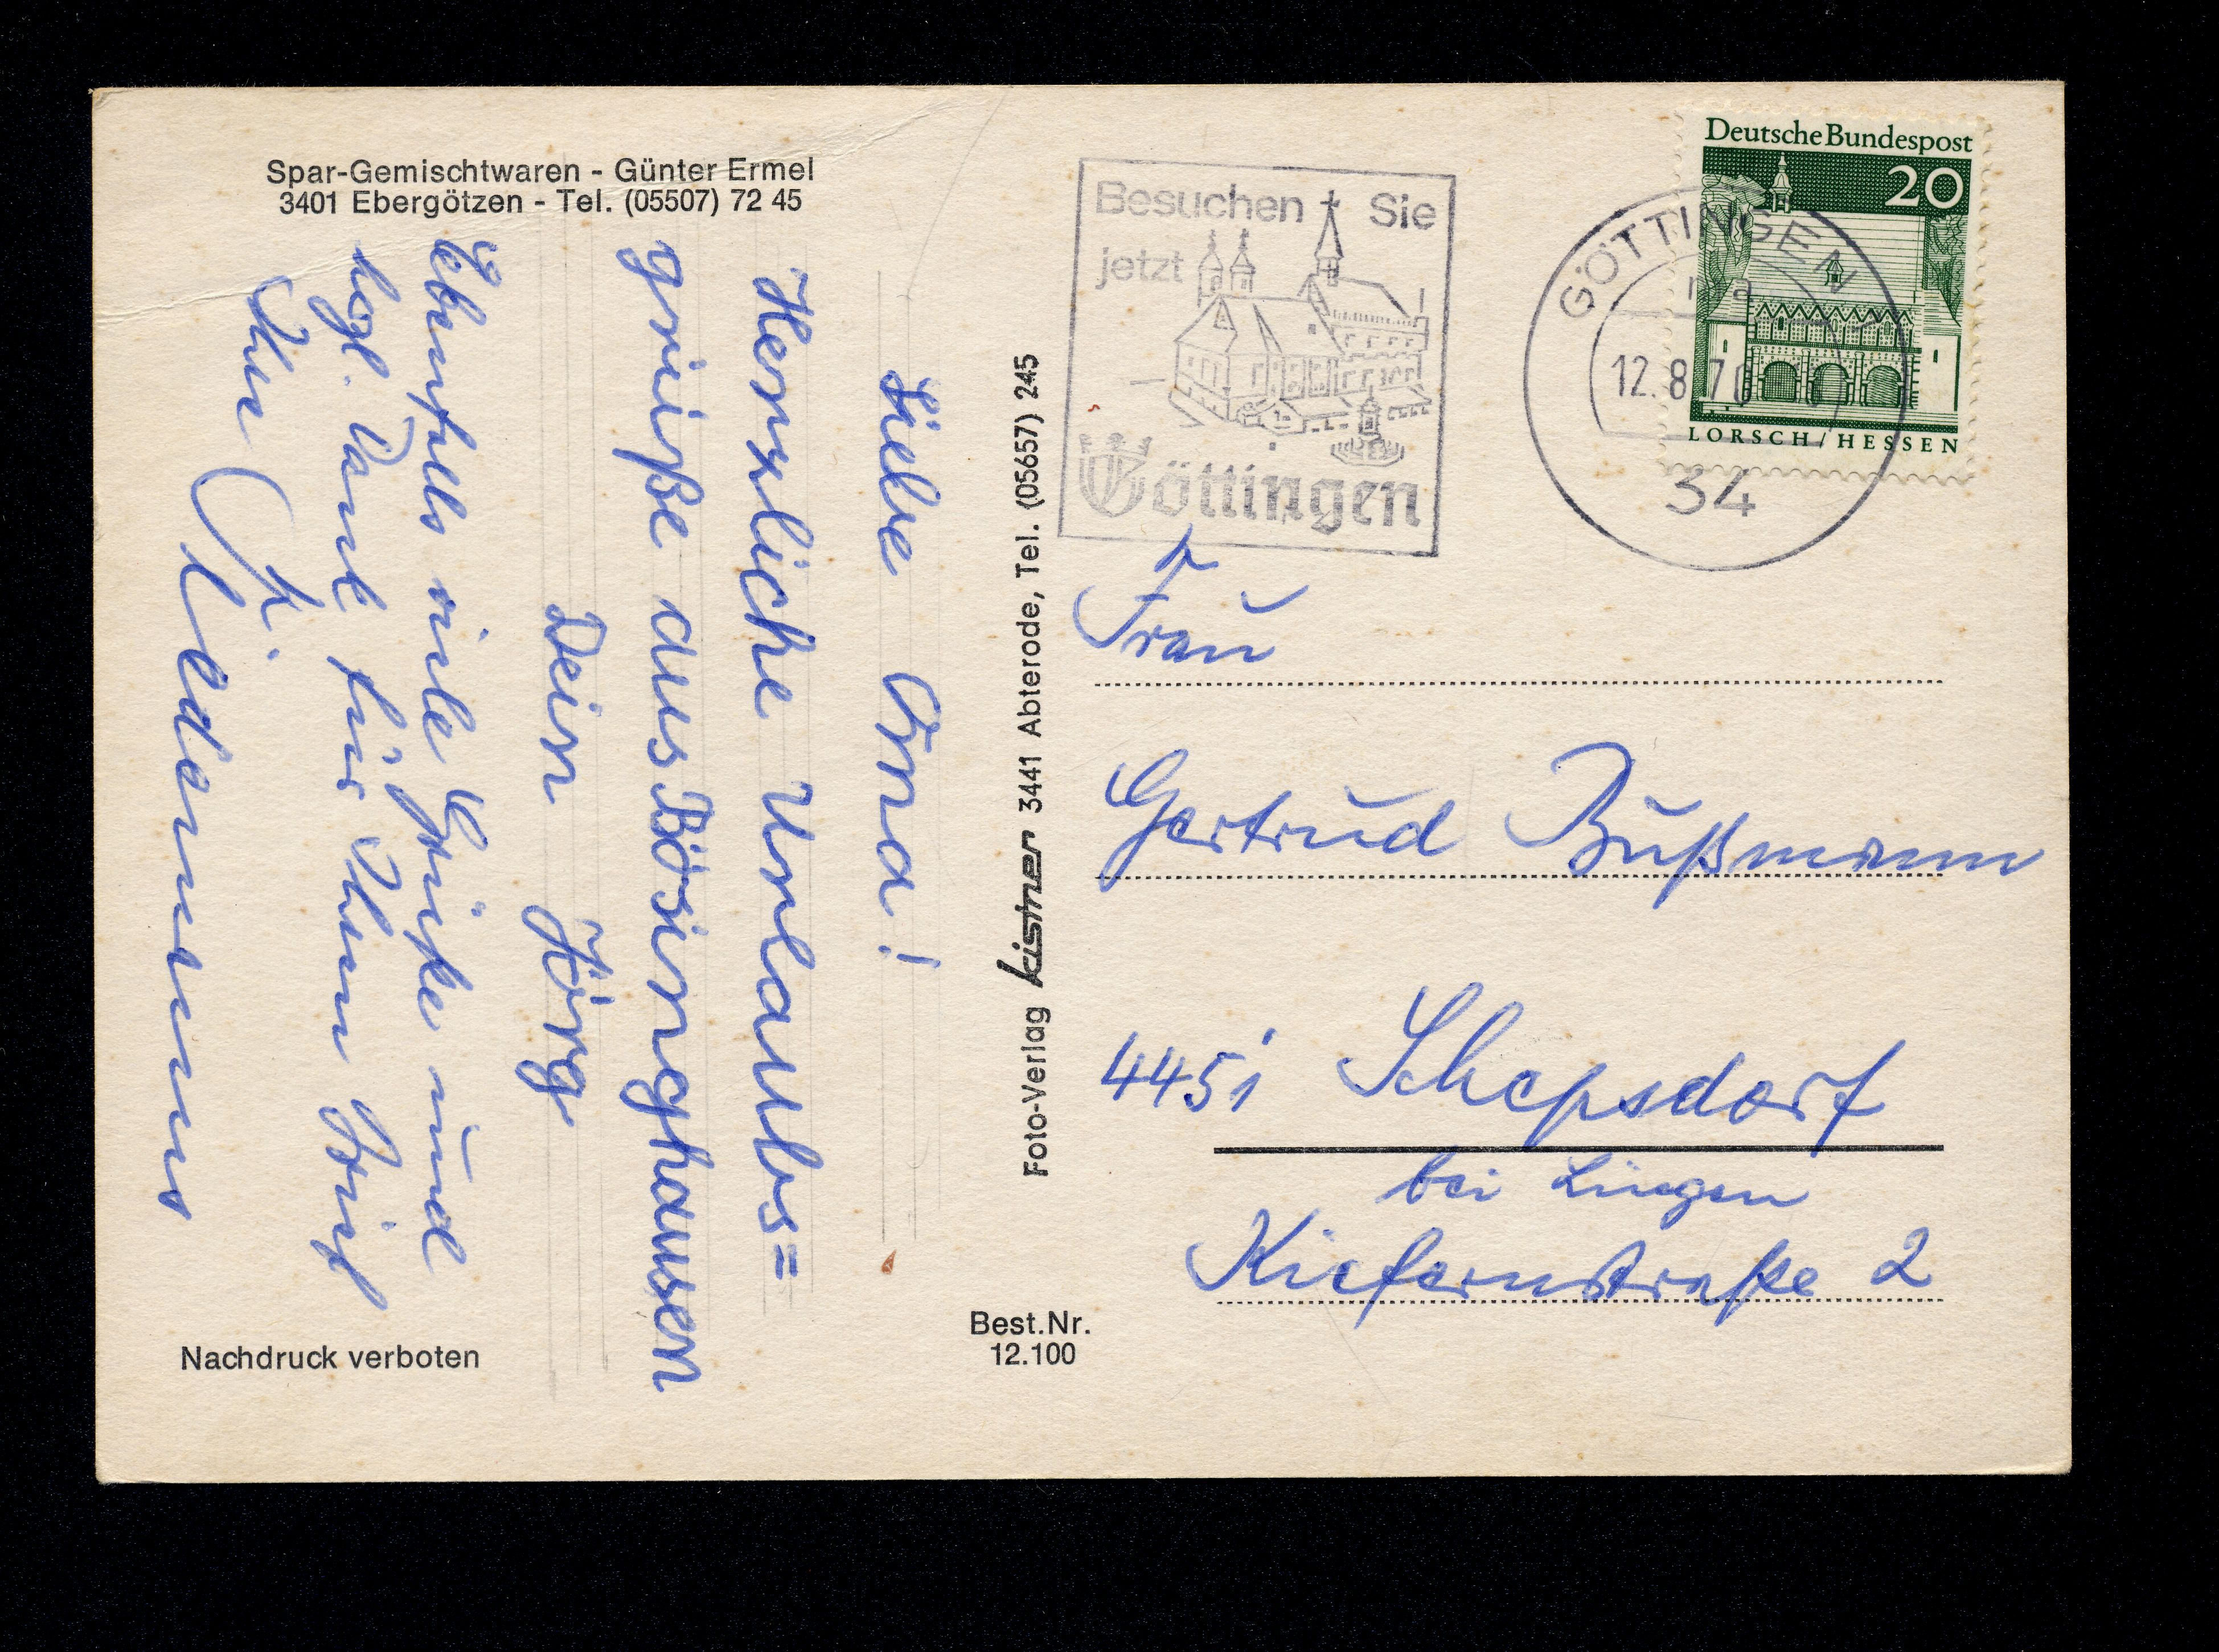 Spar-Gemischtwaren - Günter Ermel
3401 Ebergötzen - Tel. (05507) 72 45
Liebe Oma!
Herzliche Urlaubs=
grüße aus Bösinghausen
Dein Jörg
Ebenfalls viele Grüße und
herzl. Dank für Ihren Brief
Ihre
Nachdruck verboten
Foto-Verlag kistner 3441 Abterode, Tel. (05657) 245
Best.Nr.
12.100
Besuchen Sie
jetzt
Göttingen
GÖTTINGEN 1
12.8.70
34
Deutsche Bundespost
20
LORSCH/HESSEN
Frau
Gertrud Bußmann
4451 Schepsdorf
bei Lingen
Kiefernstraße 2